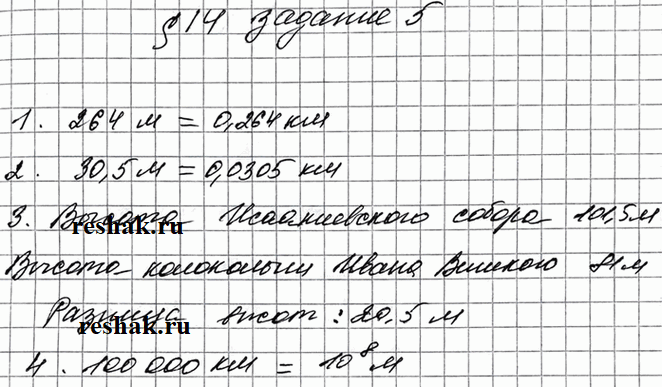 § 14 Задание 5
1. 264 м = 0,264 км
2. 30,5 м = 0,0305 км
3. Высота Исаакиевского собора 101,5 м
reshak.ru
Высота колокольни Ивана Великого 81 м
Разница высот : 20,5 м
reshak.ru
4. 100 000 км = 10⁸ м